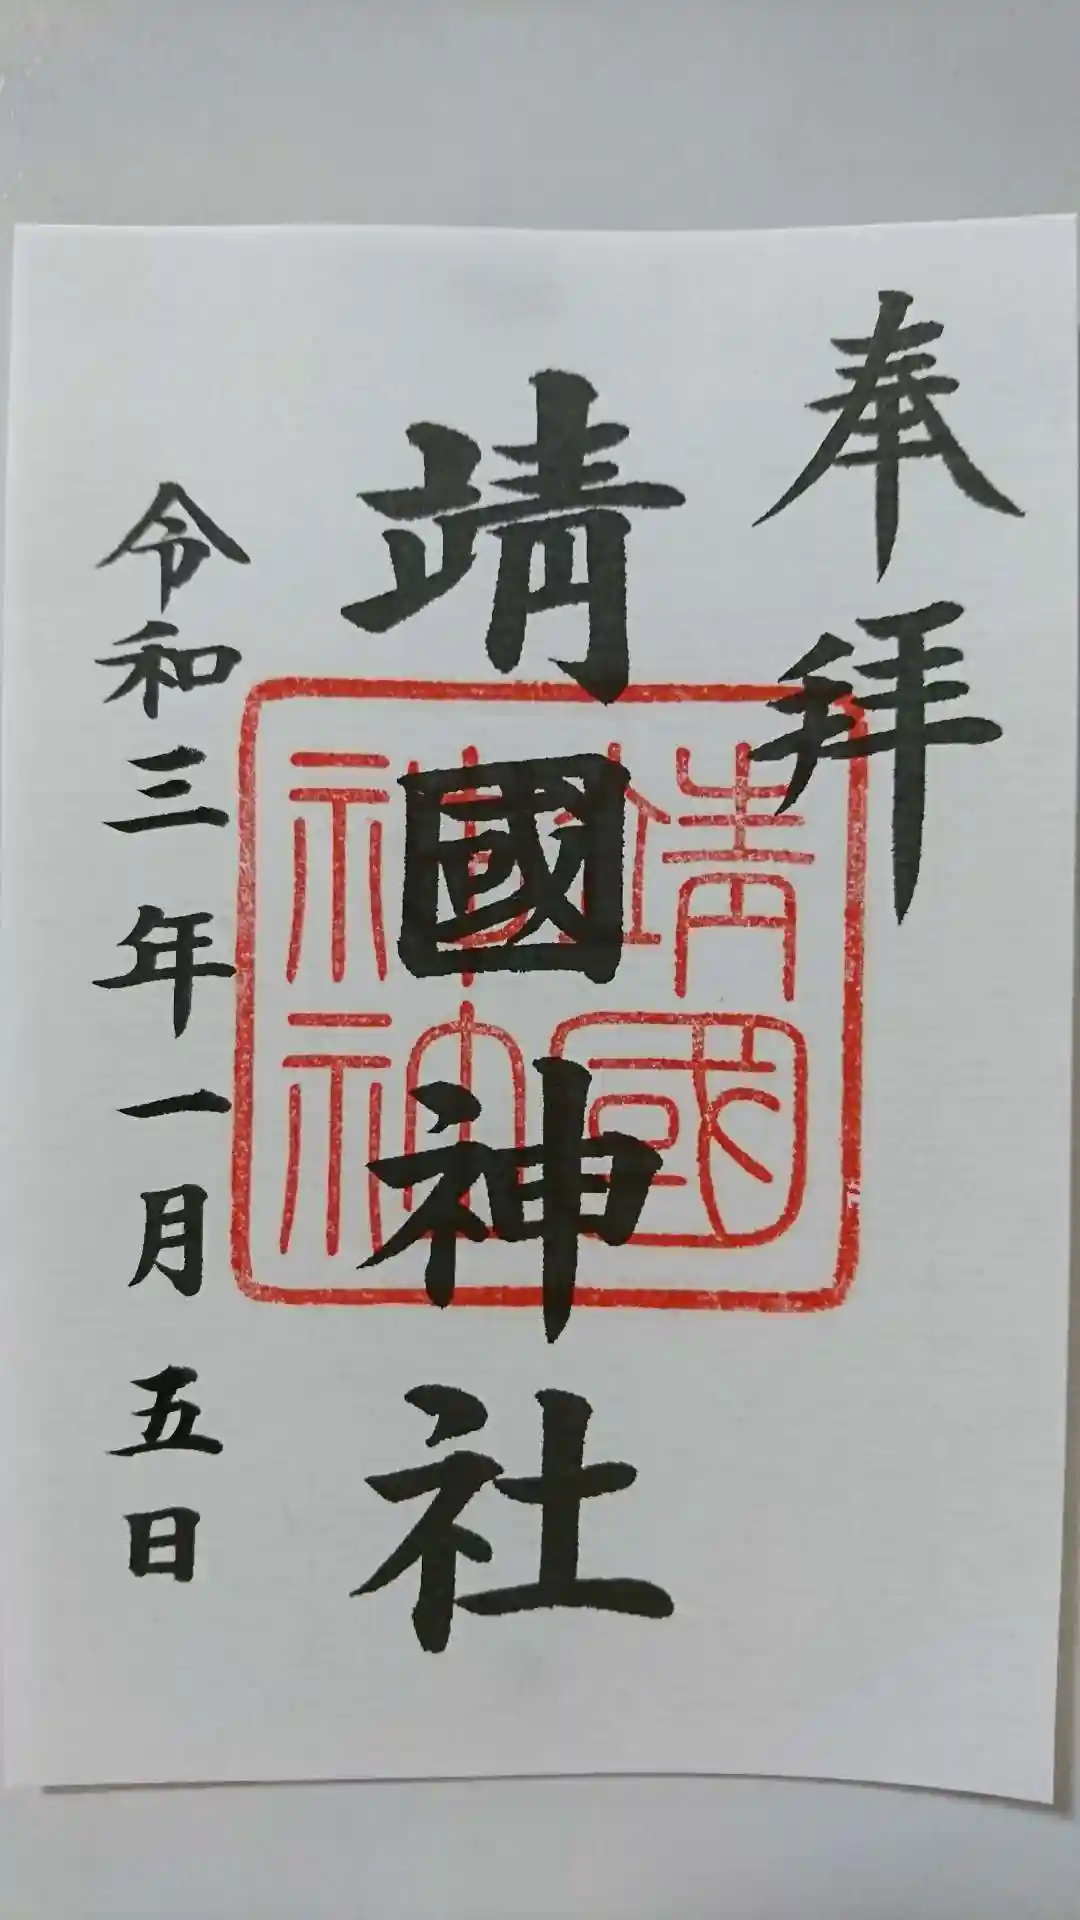 奉拝
靖國神社
令和三年一月五日
靖國
神社